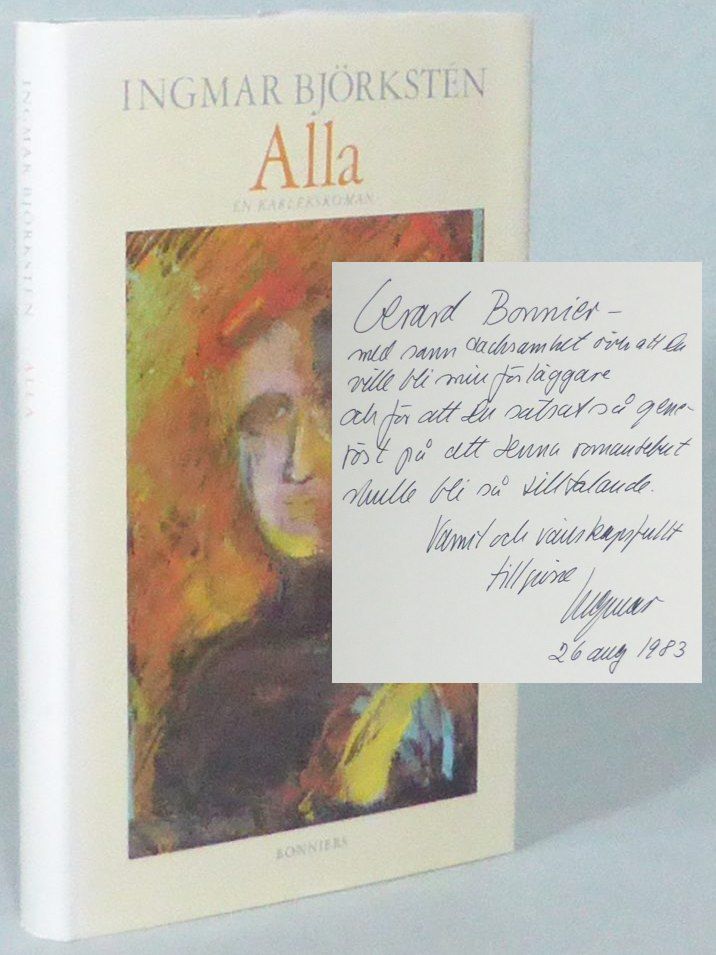 INGMAR BJÖRKSTÉN
Alla
EN KÄRLEKSROMAN
INGMAR BJÖRKSTÉN ALLA
BONNIERS
Gerard Bonnier –
med sann tacksamhet över att Du
ville bli min förläggare
och för att Du satsat så gene-
röst på att denna romandebut
skulle bli så tilltalande.
Varmt och vänskapsfullt
tillgivne
Ingmar
26 aug 1983